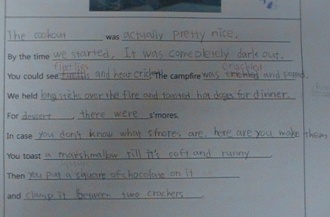 The cookout was actually pretty nice.
By the time we started, It was completely dark out.
fireflies crackled
You could see and hear crickets The campfire was and popped.
We held long sticks over the fire and toasted hot dogs for dinner.
For dessert, there were s'mores.
In case you don't know what s'mores are, here are you make them
You toast a marshmallow till it's soft and runny
Then you put a square of chocolate on it
and clamp it between two crackers